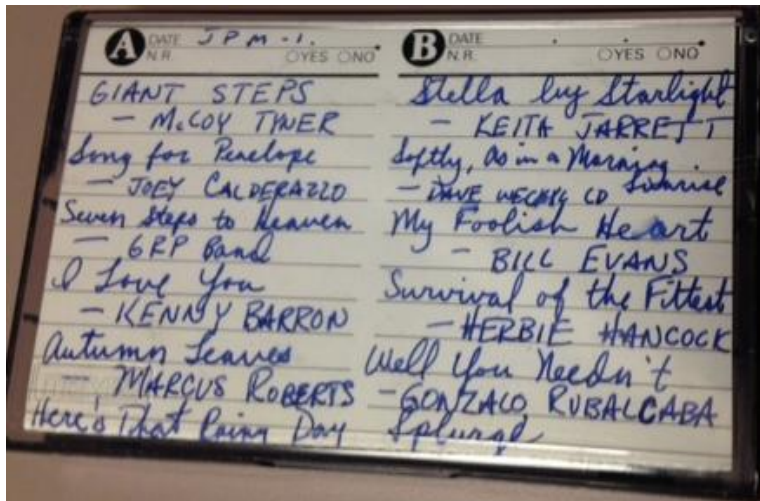 A DATE JPM-1.
N.R. OYES ONO
GIANT STEPS
- McCOY TYNER
Song for Penelope
- JOEY CALDERAZZO
Seven Steps to Heaven
- GRP Band
I Love You
- KENNY BARRON
Autumn Leaves
- MARCUS ROBERTS
Here's That Rainy Day
B DATE
N.R. OYES ONO
Stella by Starlight
- KEITH JARRETT
Softly, As in a Morning
- DAVE WECKL CD Sunrise
My Foolish Heart
- BILL EVANS
Survival of the Fittest
- HERBIE HANCOCK
Well You Needn't
- GONZALO RUBALCABA
Splurge